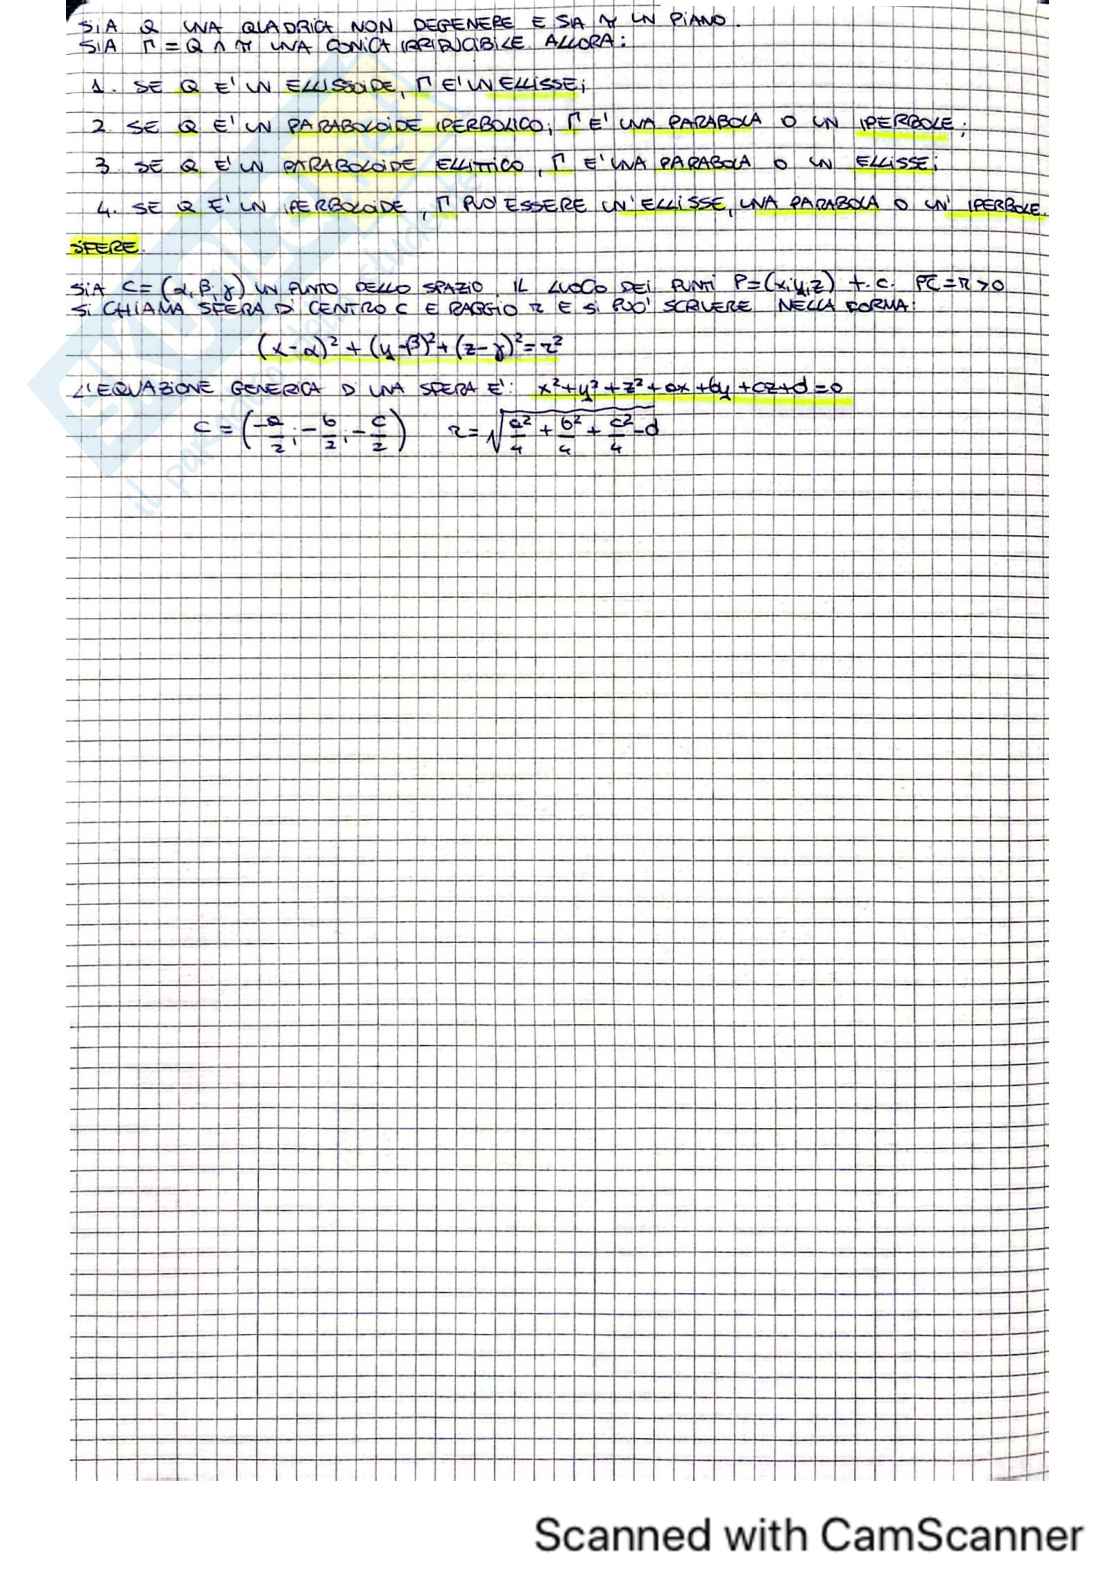 SIA Q UNA QUADRICA NON DEGENERE E SIA π UN PIANO.
SIA Γ = Q ∩ π UNA CONICA IRRIDUCIBILE. ALLORA:
1. SE Q E' UN ELLISSOIDE, Γ E' UN ELLISSE;
2. SE Q E' UN PARABOLOIDE IPERBOLICO, Γ E' UNA PARABOLA O UN IPERBOLE;
3. SE Q E' UN PARABOLOIDE ELLITTICO, Γ E' UNA PARABOLA O UN ELLISSE;
4. SE Q E' UN IPERBOLOIDE, Γ PUO' ESSERE UN' ELLISSE, UNA PARABOLA O UN' IPERBOLE.
SFERE.
SIA C = (α, β, γ) UN PUNTO DELLO SPAZIO. IL LUOGO DEI PUNTI P=(x,y,z) t.c. PC = r > 0
SI CHIAMA SFERA DI CENTRO C E RAGGIO r E SI PUO' SCRIVERE NELLA FORMA:
(x-α)² + (y-β)² + (z-γ)² = r²
L'EQUAZIONE GENERICA DI UNA SFERA E': x²+y²+z²+ax+by+cz+d=0
C = (-a/2, -b/2, -c/2) r = √(a²/4 + b²/4 + c²/4 - d)
Scanned with CamScanner